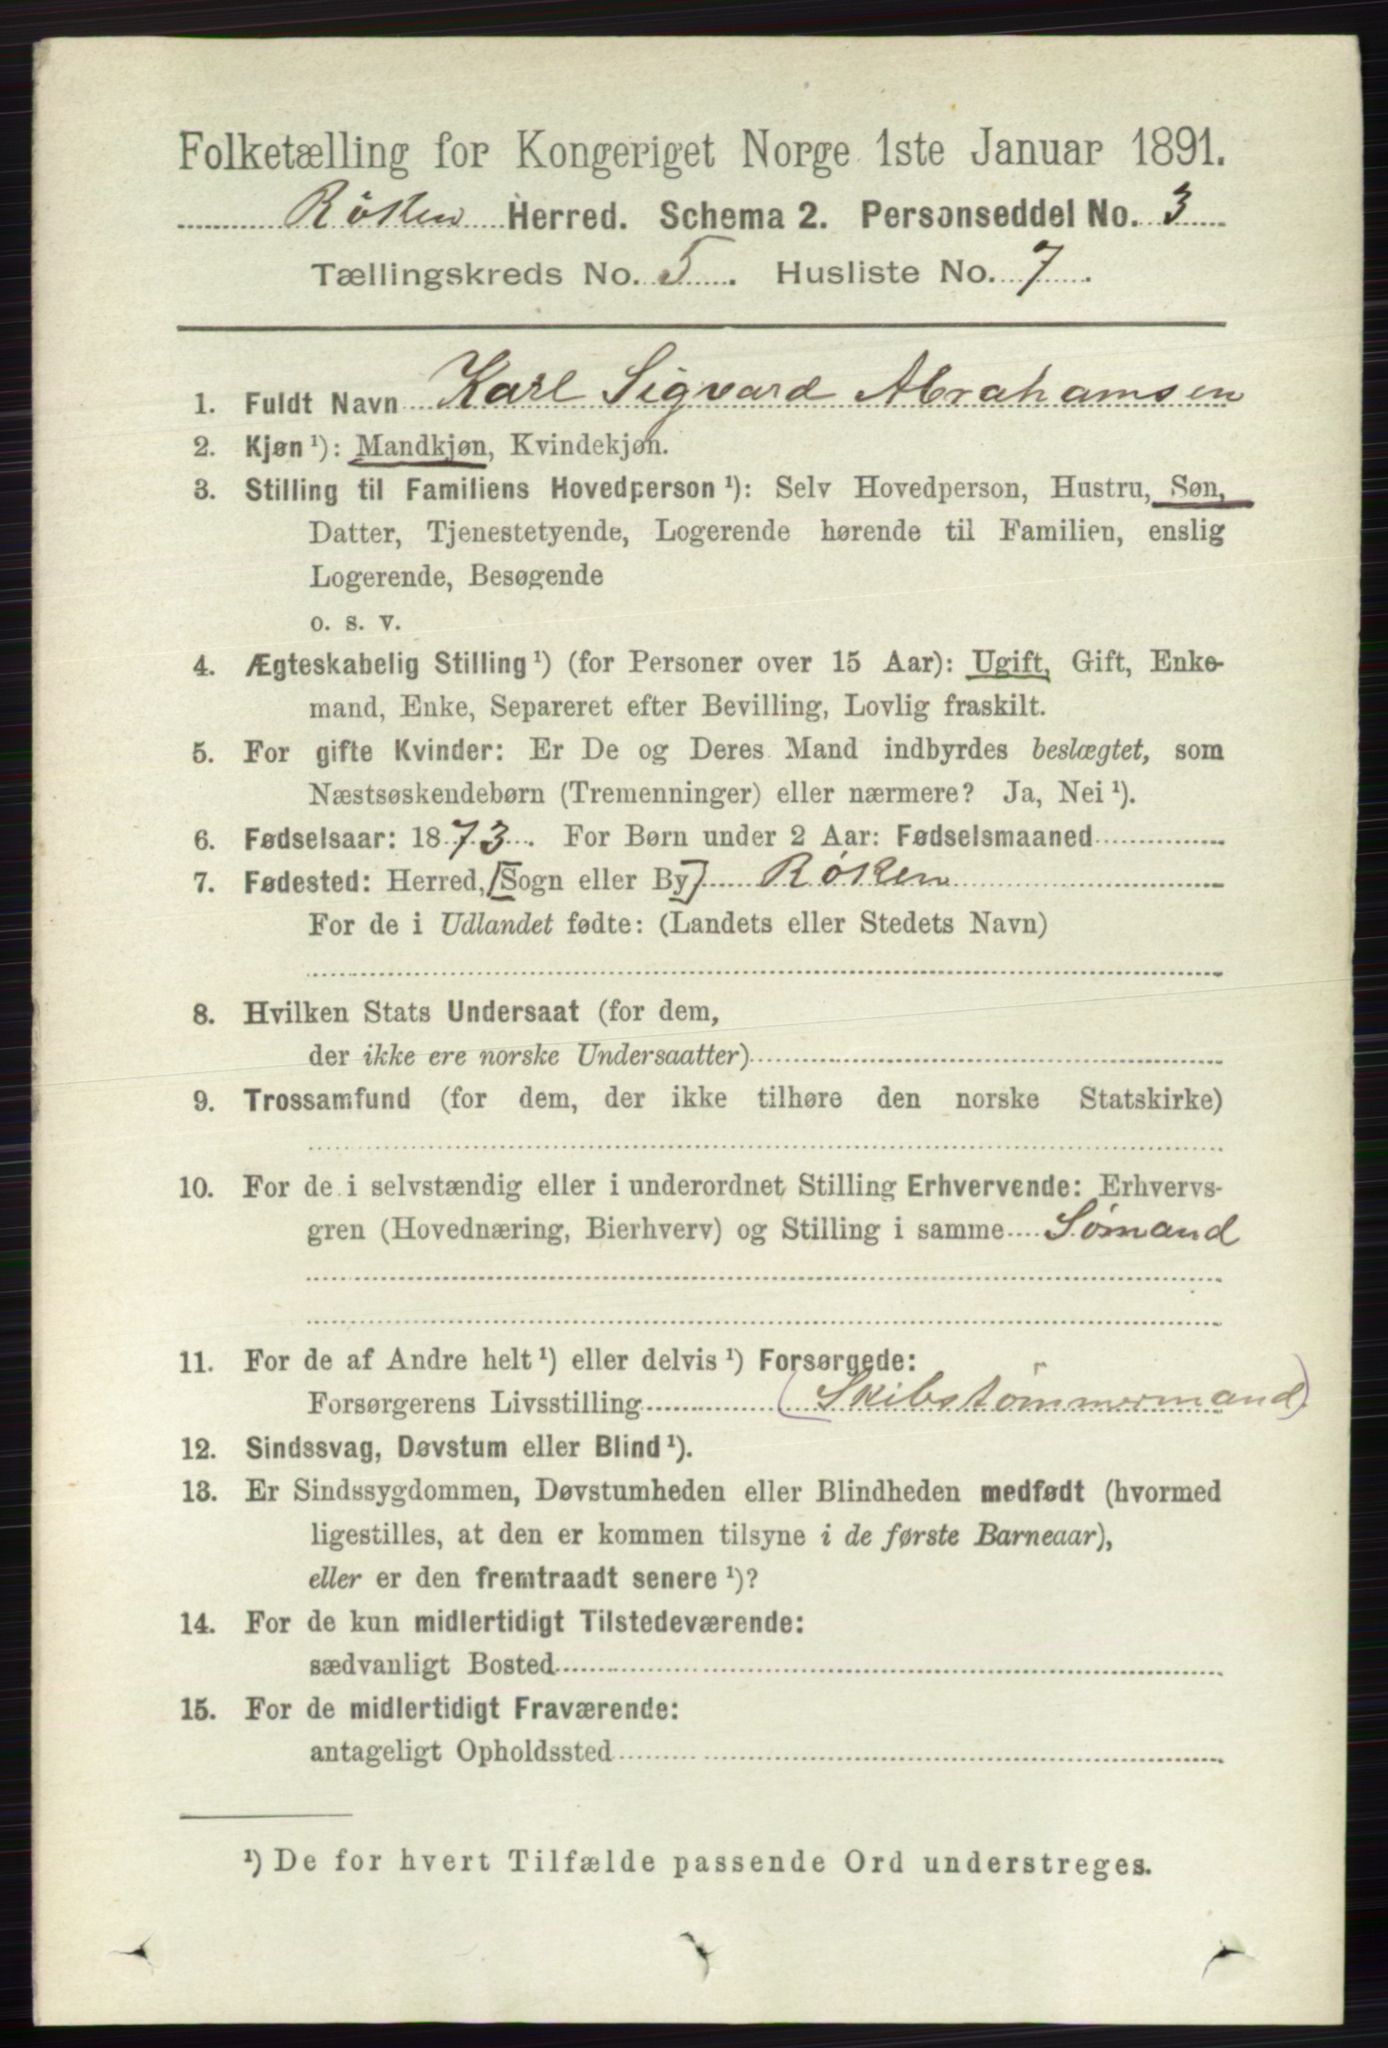 Folketælling for Kongeriget Norge 1ste Januar 1891.
Røken Herred. Schema 2. Personseddel No. 3
Tællingskreds No. 5. Husliste No. 7.
1. Fuldt Navn Karl Sigvard Abrahamsen
2. Kjøn¹): Mandkjøn, Kvindekjøn.
3. Stilling til Familiens Hovedperson¹): Selv Hovedperson, Hustru, Søn,
Datter, Tjenestetyende, Logerende hørende til Familien, enslig
Logerende, Besøgende
o. s. v.
4. Ægteskabelig Stilling¹) (for Personer over 15 Aar): Ugift, Gift, Enke-
mand, Enke, Separeret efter Bevilling, Lovlig fraskilt.
5. For gifte Kvinder: Er De og Deres Mand indbyrdes beslægtet, som
Næstsøskendebørn (Tremenninger) eller nærmere? Ja, Nei¹).
6. Fødselsaar: 1873. For Børn under 2 Aar: Fødselsmaaned
7. Fødested: Herred, [Sogn eller By] Røken
For de i Udlandet fødte: (Landets eller Stedets Navn)
8. Hvilken Stats Undersaat (for dem,
der ikke ere norske Undersaatter)
9. Trossamfund (for dem, der ikke tilhøre den norske Statskirke)
10. For de i selvstændig eller i underordnet Stilling Erhvervende: Erhvervs-
gren (Hovednæring, Bierhverv) og Stilling i samme Sømand
11. For de af Andre helt¹) eller delvis¹) Forsørgede:
Forsørgerens Livsstilling (Skibstømmermand)
12. Sindssvag, Døvstum eller Blind¹).
13. Er Sindssygdommen, Døvstumheden eller Blindheden medfødt (hvormed
ligestilles, at den er kommen tilsyne i de første Barneaar),
eller er den fremtraadt senere¹)?
14. For de kun midlertidigt Tilstedeværende:
sædvanligt Bosted
15. For de midlertidigt Fraværende:
antageligt Opholdssted
¹) De for hvert Tilfælde passende Ord understreges.